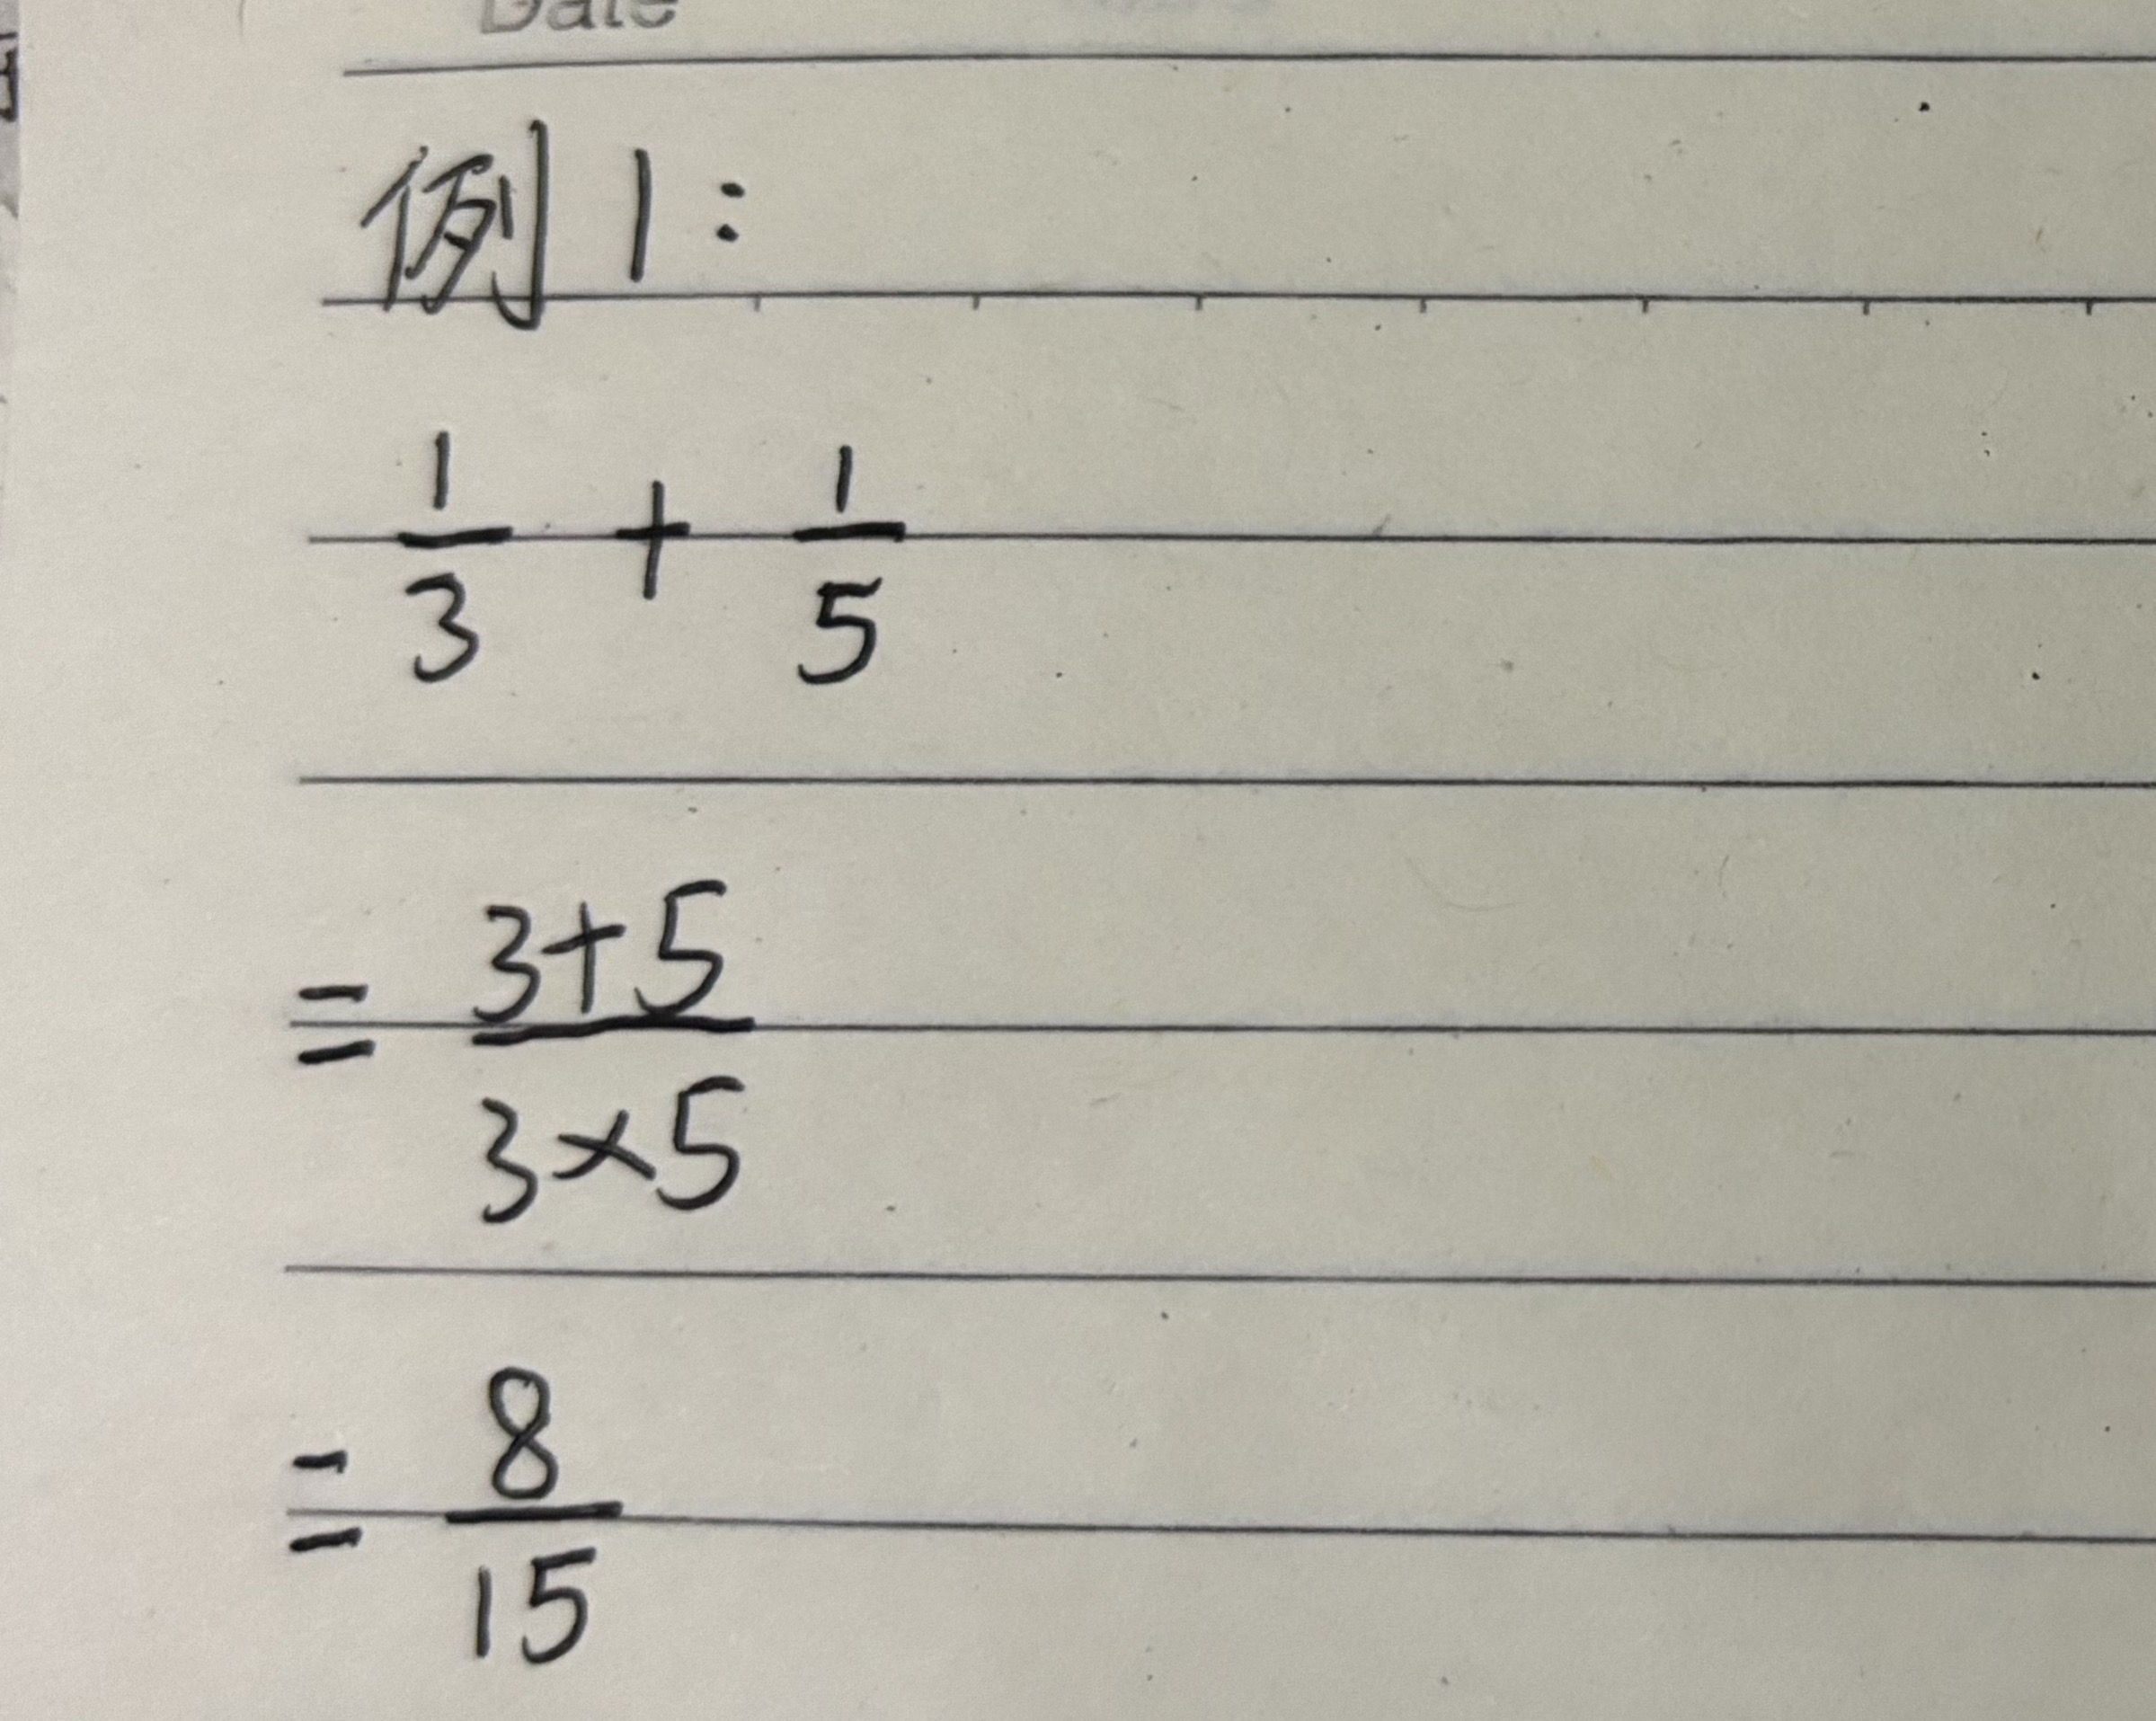 Date
例1:
1/3 + 1/5
= (3+5)/(3×5)
= 8/15